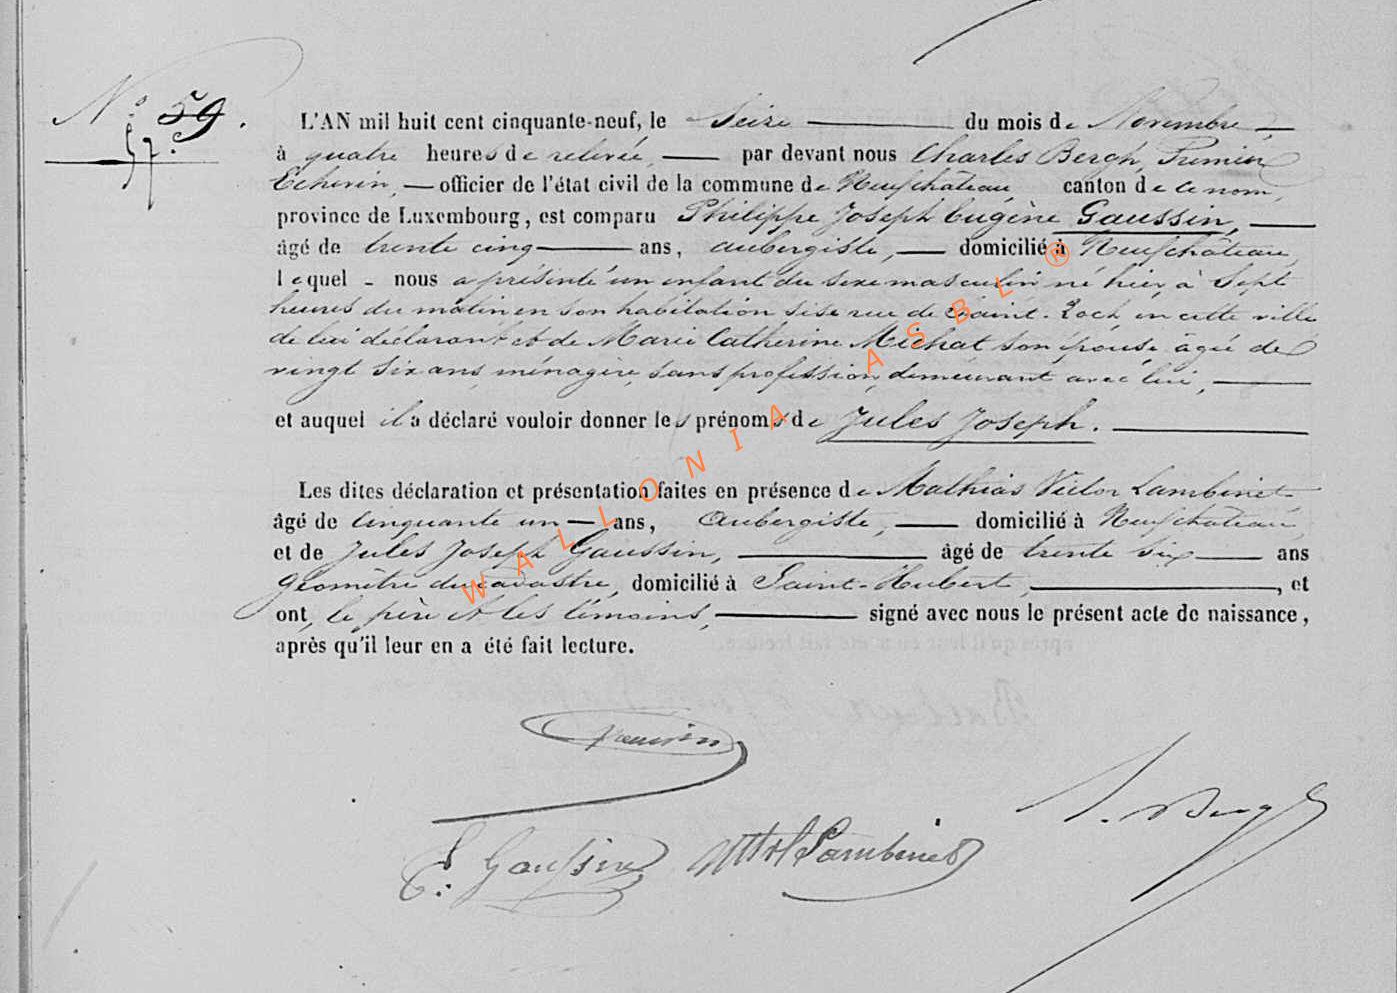 N° 59.
57.
L'AN mil huit cent cinquante-neuf, le Seize du mois de Novembre,
à quatre heures de relevée, par devant nous Charles Bergh, Premier
Echevin, officier de l'état civil de la commune de Neufchâteau canton de ce nom,
province de Luxembourg, est comparu Philippe Joseph Eugène Gaussin,
âgé de trente cinq ans, aubergiste, domicilié à Neufchâteau,
lequel nous a présenté un enfant du sexe masculin né hier, à Sept
heures du matin en son habitation sise rue de Saint-Roch en cette ville
de lui déclarant et de Marie Catherine Michat son épouse âgée de
vingt six ans ménagère, sans profession, demeurant avec lui,
et auquel il a déclaré vouloir donner les prénoms de Jules Joseph.
Les dites déclaration et présentation faites en présence de Mathias Victor Lambinet
âgé de Cinquante un ans, Aubergiste, domicilié à Neufchateau
et de Jules Joseph Gaussin, âgé de trente six ans
géomètre du cadastre, domicilié à Saint-Hubert, et
ont, le père et les témoins, signé avec nous le présent acte de naissance,
après qu'il leur en a été fait lecture.
Gaussin
Gaussin Lambinet
Bergh
WALLONIA ASBL ®